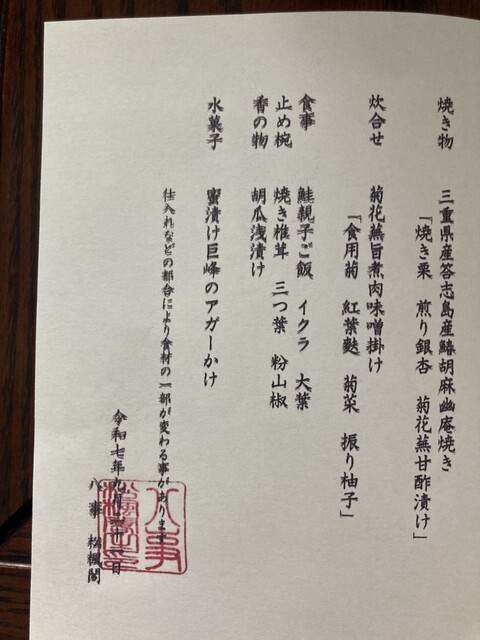 焼き物 三重県産答志島産鰆胡麻幽庵焼き
「焼き栗 煎り銀杏 菊花蕪甘酢漬け」
炊合せ 菊花蕪旨煮肉味噌掛け
「食用菊 紅葉麩 菊菜 振り柚子」
食事 鮭親子ご飯 イクラ 大葉
止め椀 焼き椎茸 三つ葉 粉山椒
香の物 胡瓜浅漬け
水菓子 蜜漬け巨峰のアガーかけ
仕入れなどの都合により食材の一部が変わる事があります
令和七年九月二十一日
八事 松楓閣
八事